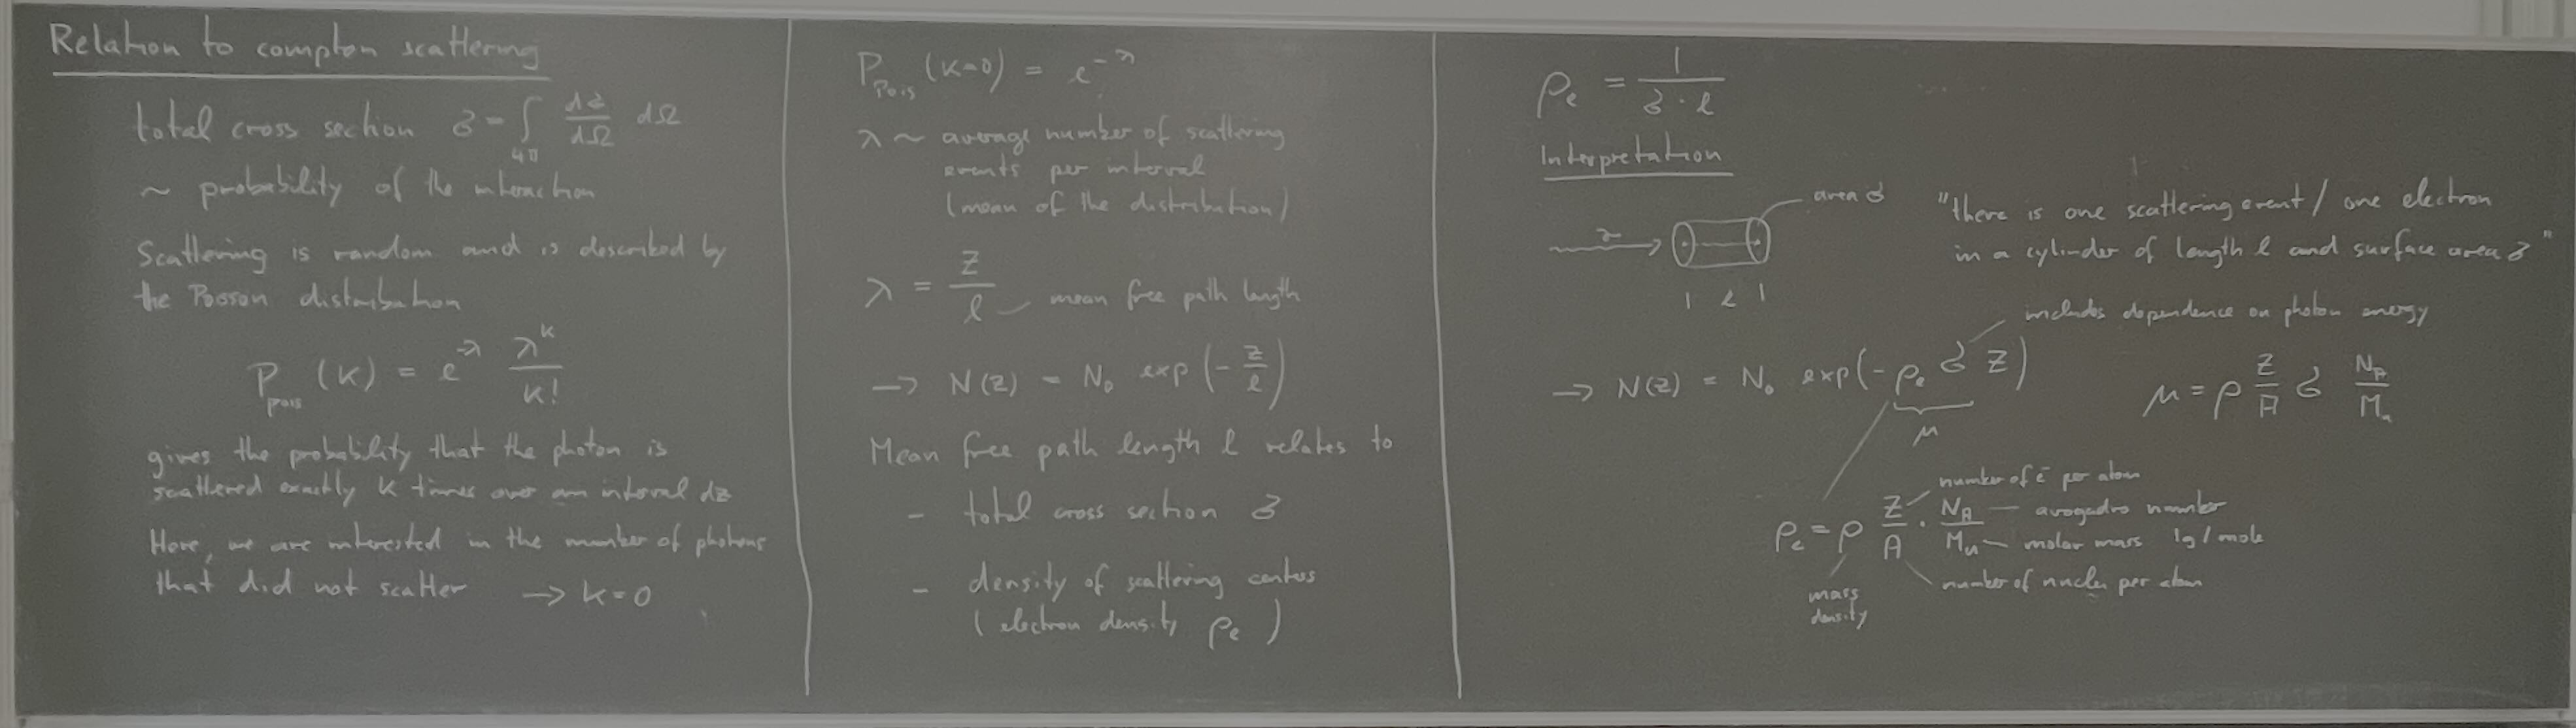 Relation to compton scattering
total cross section σ = ∫_{4π} dσ/dΩ dΩ
~ probability of the interaction
Scattering is random and is described by
the Poisson distribution
P_Pois (k) = e^{-λ} λ^k / k!
gives the probability that the photon is
scattered exactly k times over an interval dz
Here, we are interested in the number of photons
that did not scatter → k=0
P_Pois (k=0) = e^{-λ}
λ ~ average number of scattering
events per interval
(mean of the distribution)
λ = z / l
mean free path length
→ N(z) = N₀ exp(-z/l)
Mean free path length l relates to
- total cross section σ
- density of scattering centers
(electron density ρe)
ρe = 1 / (σ · l)
Interpretation
area σ
γ
l
"there is one scattering event / one electron
in a cylinder of length l and surface area σ"
includes dependence on photon energy
→ N(z) = N₀ exp(-ρe σ z)
μ
μ = ρ Z/A σ N_A/M_u
number of e⁻ per atom
ρe = ρ Z/A · N_A/M_u
avogadro number
molar mass 1g/mole
number of nuclei per atom
mass
density